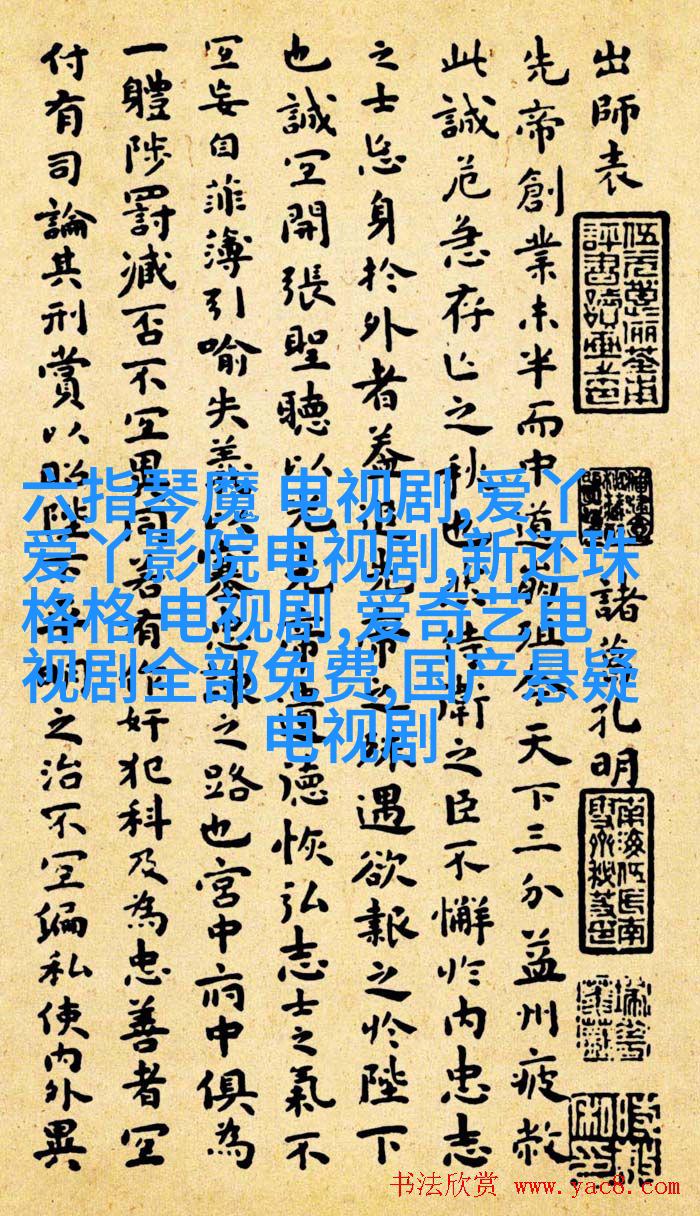 出師表
諸葛孔明
先帝創業未半而中道崩殂今天下三分益州疲敝
此誠危急存亡之秋也然侍衛之臣不懈於內忠志
之士忘身於外者蓋追先帝之殊遇欲報之於陛下
也誠宜開張聖聽以光先帝遺德恢弘志士之氣不
宜妄自菲薄引喻失義以塞忠諫之路也宮中府中俱為
一體陟罰臧否不宜異同若有作奸犯科及為忠善者宜
付有司論其刑賞以昭陛下平明之治不宜偏私使內外異
六指琴魔 电视剧,爱丫
爱丫影院电视剧,新还珠
格格 电视剧,爱奇艺电
视剧全部免费,国产悬疑
电视剧
书法欣赏 www.yac8.com